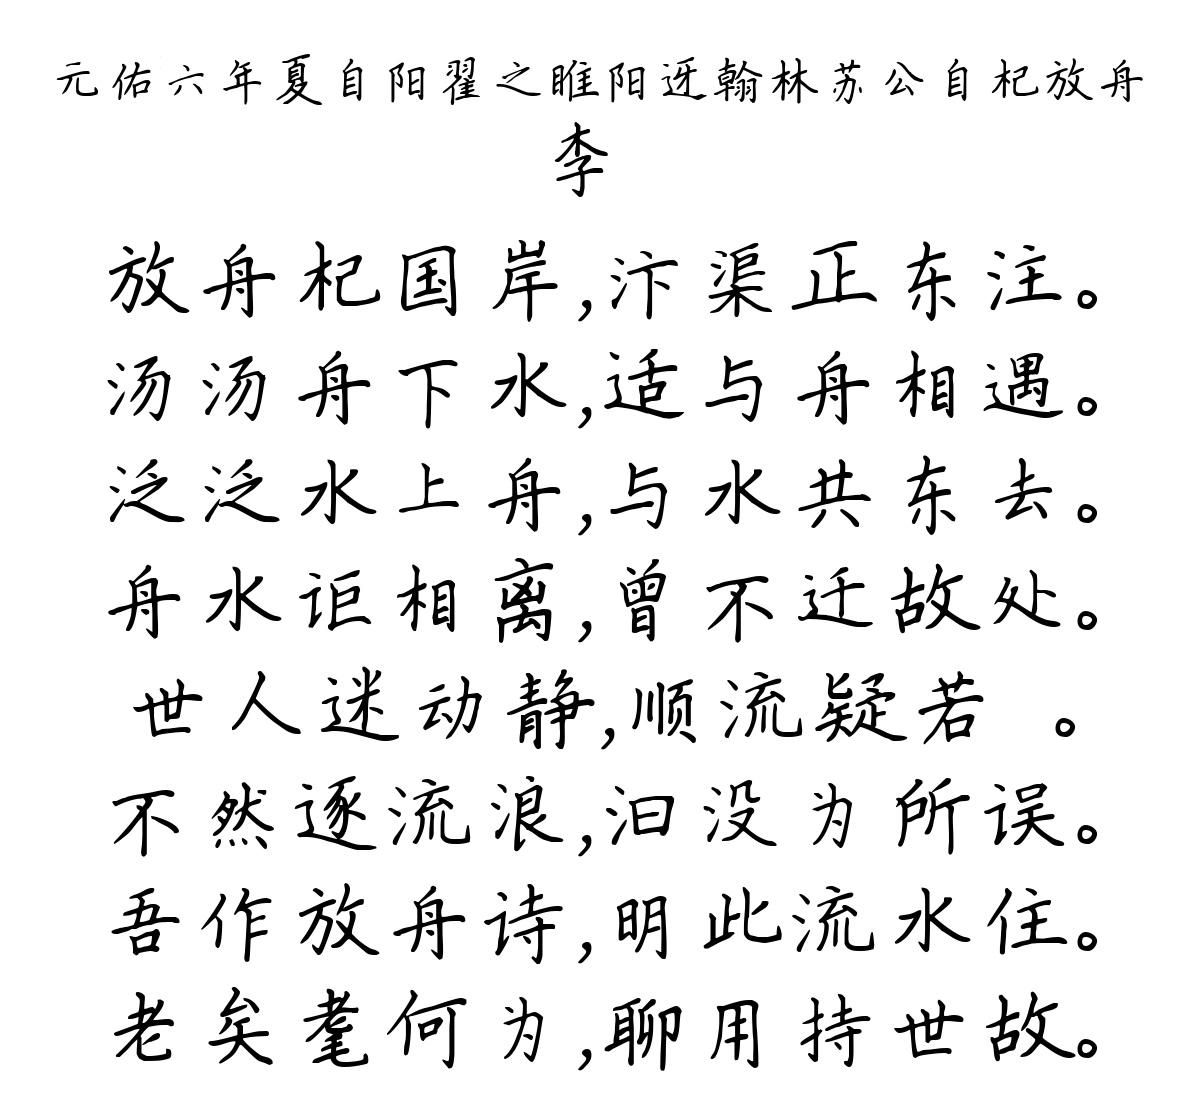 元佑六年夏自阳翟之睢阳迓翰林苏公自杞放舟
李
放舟杞国岸,汴渠正东注。
汤汤舟下水,适与舟相遇。
泛泛水上舟,与水共东去。
舟水讵相离,曾不迁故处。
世人迷动静,顺流疑若 。
不然逐流浪,汩没为所误。
吾作放舟诗,明此流水住。
老矣耄何为,聊用持世故。